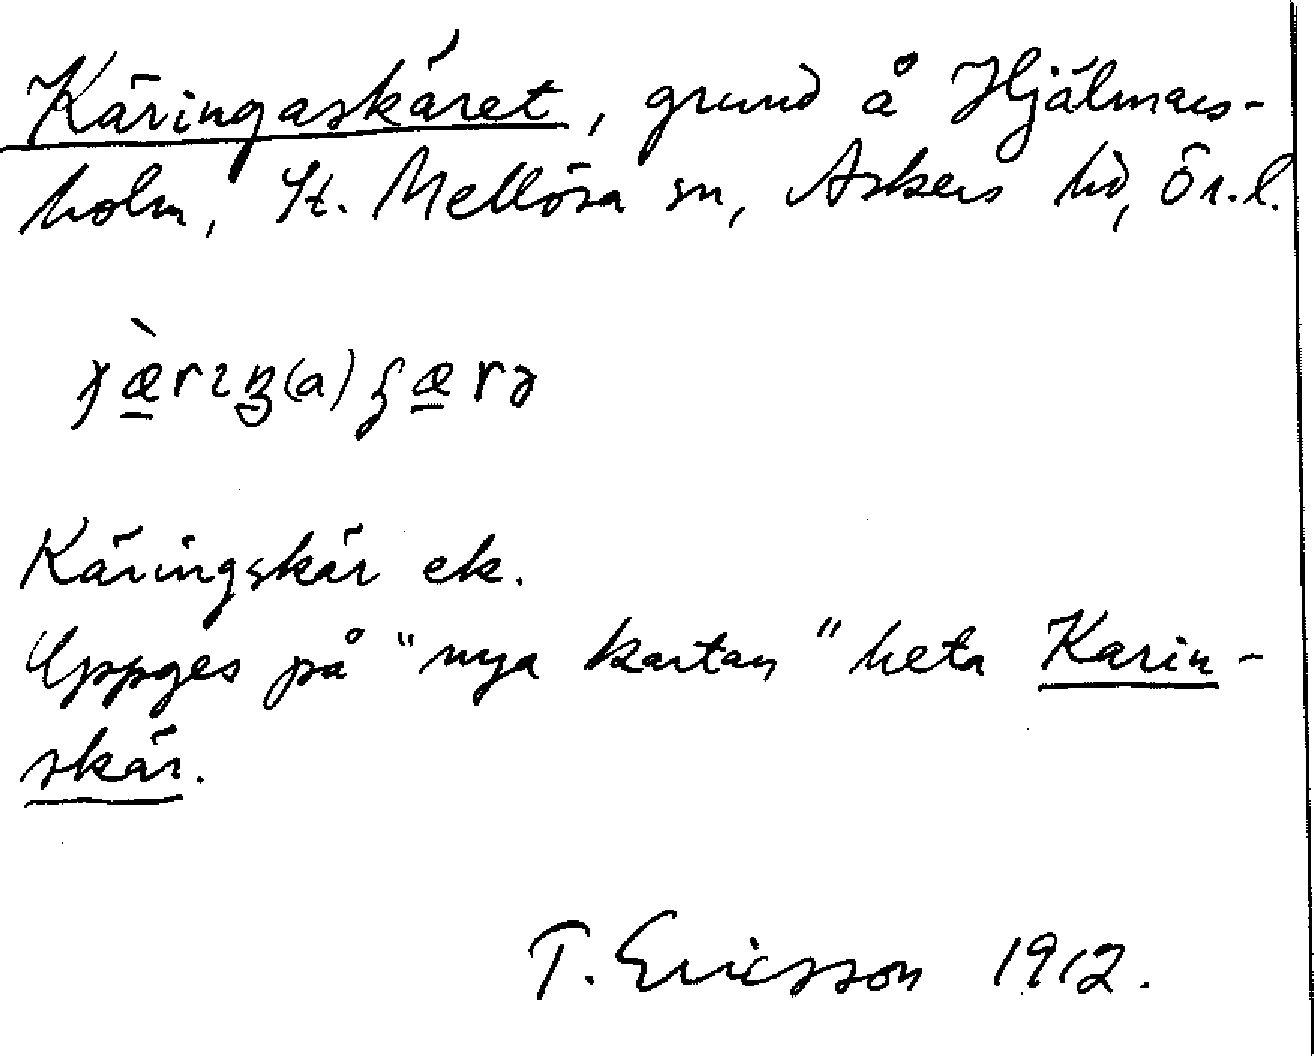 Käringaskäret, grund å Hjälmars-
holm, St. Mellösa sn, Askers hd, Ör.l.
Käringskär ek.
Uppges på "nya kartan" heta Karin-
skär.
T. Ericsson 1912.